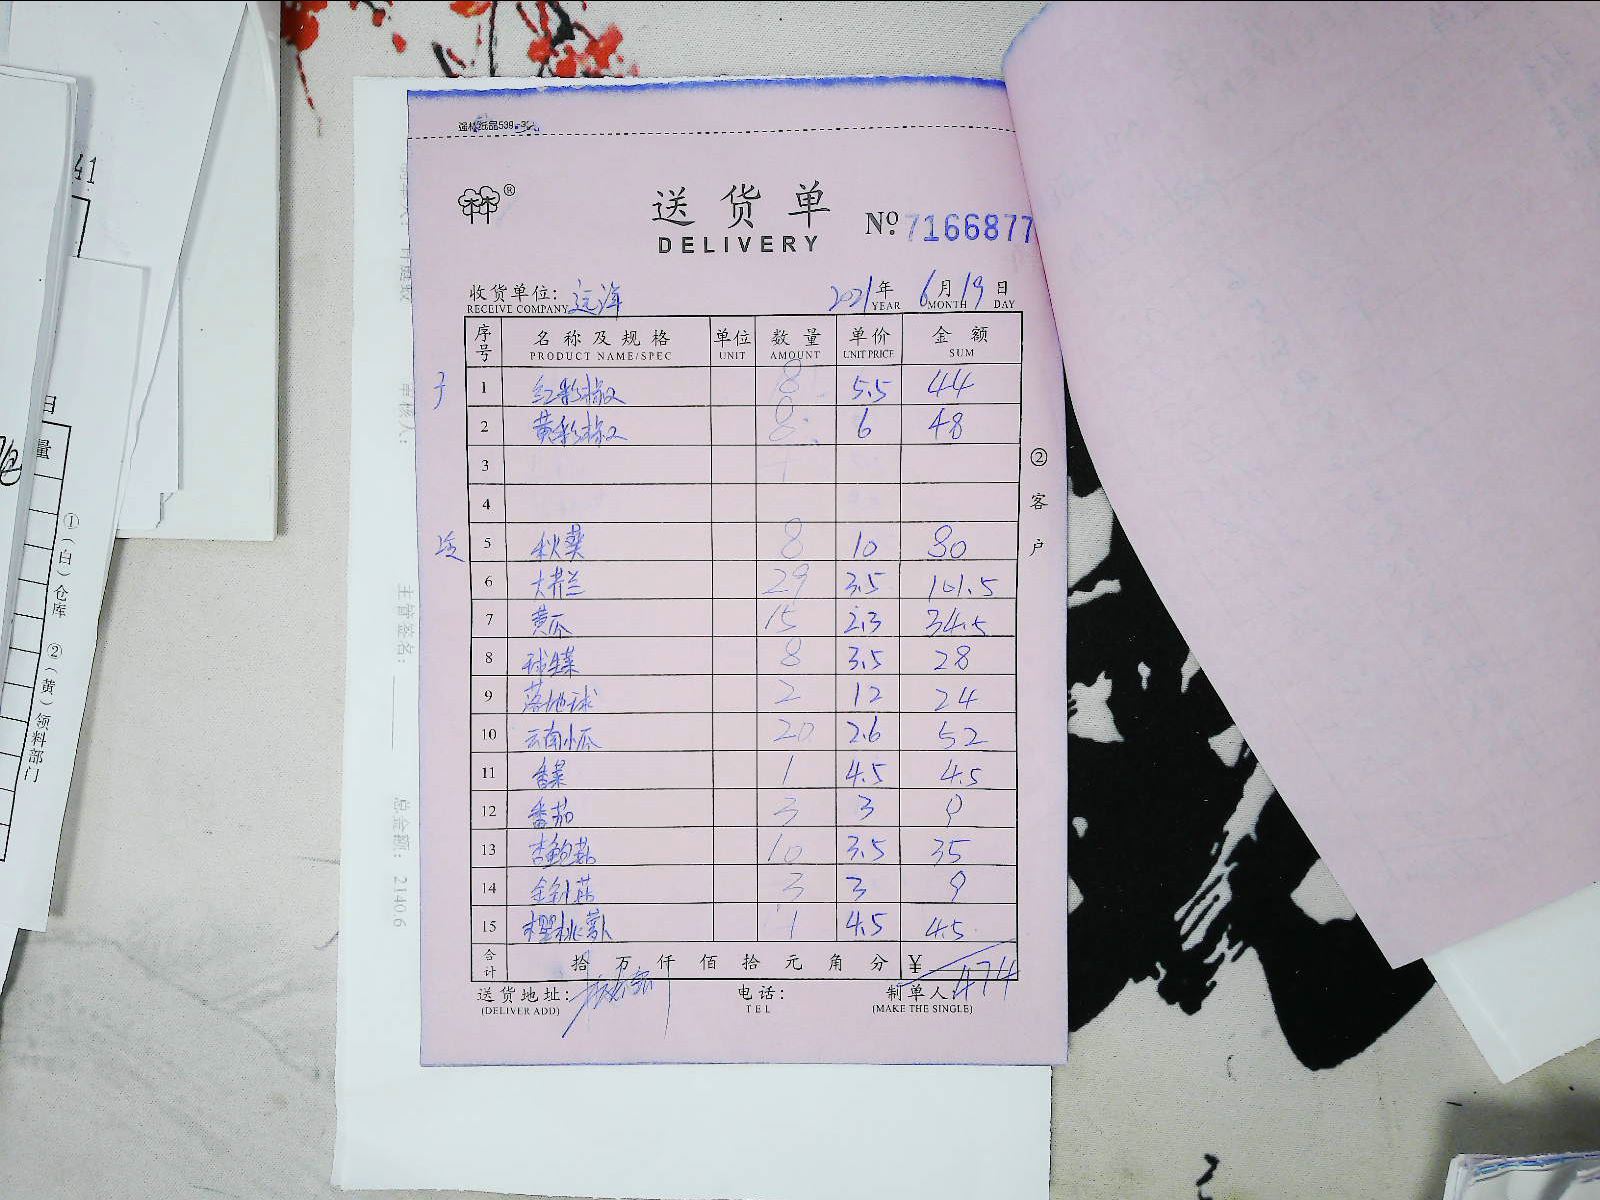 强林纸品539-32
®
送货单
DELIVERY
№ 7166877
收货单位: 远海 2021年 6月 19日
RECEIVE COMPANY YEAR MONTH DAY
序号 名称及规格 单位 数量 单价 金额
PRODUCT NAME/SPEC UNIT AMOUNT UNIT PRICE SUM
1 红彩椒 8 5.5 44
2 黄彩椒 8 6 48
3
4
5 秋葵 8 10 80
6 大芥兰 29 3.5 101.5
7 黄瓜 15 2.3 34.5
8 球生菜 8 3.5 28
9 落地球 2 12 24
10 云南小瓜 20 2.6 52
11 香菜 1 4.5 4.5
12 番茄 3 3 9
13 杏鲍菇 10 3.5 35
14 金针菇 3 3 9
15 樱桃萝卜 1 4.5 4.5
合计 拾 万 仟 佰 拾 元 角 分 ¥ 474
送货地址: 电话: 制单人:
(DELIVER ADD) TEL (MAKE THE SINGLE)
②客户
41
日
量
①(白)仓库 ②(黄)领料部门
审核人:
主管签名:
总金额: 2140.6